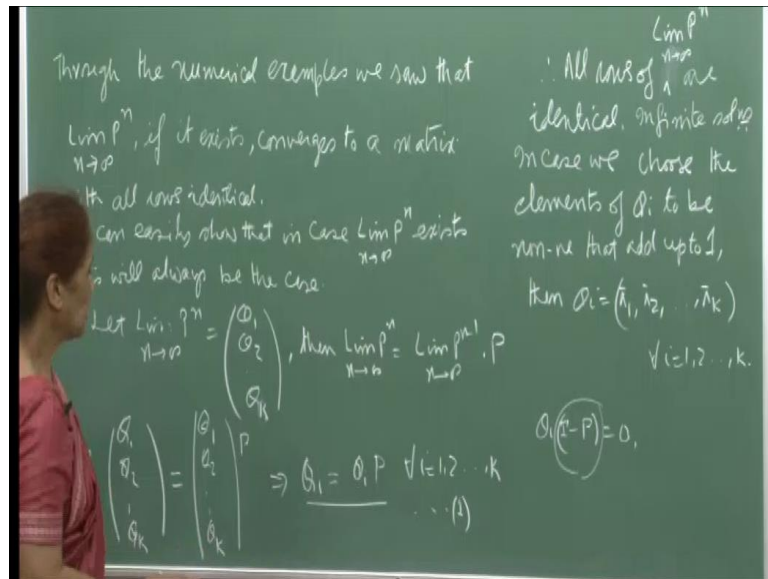 Through the numerical examples we saw that
Lim Pⁿ, if it exists, converges to a matrix
n→∞
th all rows identical.
can easily show that in case Lim Pⁿ exists
n→∞
s will always be the case.
Let Lim Pⁿ = (Q₁ Q₂ ⋮ Q_K), then Lim Pⁿ = Lim Pⁿ⁻¹. P
n→∞ n→∞ n→∞
(Q₁ Q₂ ⋮ Q_K) = (Q₁ Q₂ ⋮ Q_K) P ⇒ Q₁ = Q₁ P ∀ i=1,2...,K
...(1)
Lim Pⁿ
n→∞
∴ All rows of ^ are
identical. Infinite solns
In case we choose the
elements of Qi to be
non-ve that add up to 1,
then Qi = (π₁, π₂, ..., π_K)
∀ i=1,2...,K.
Q₁(I-P)=0,